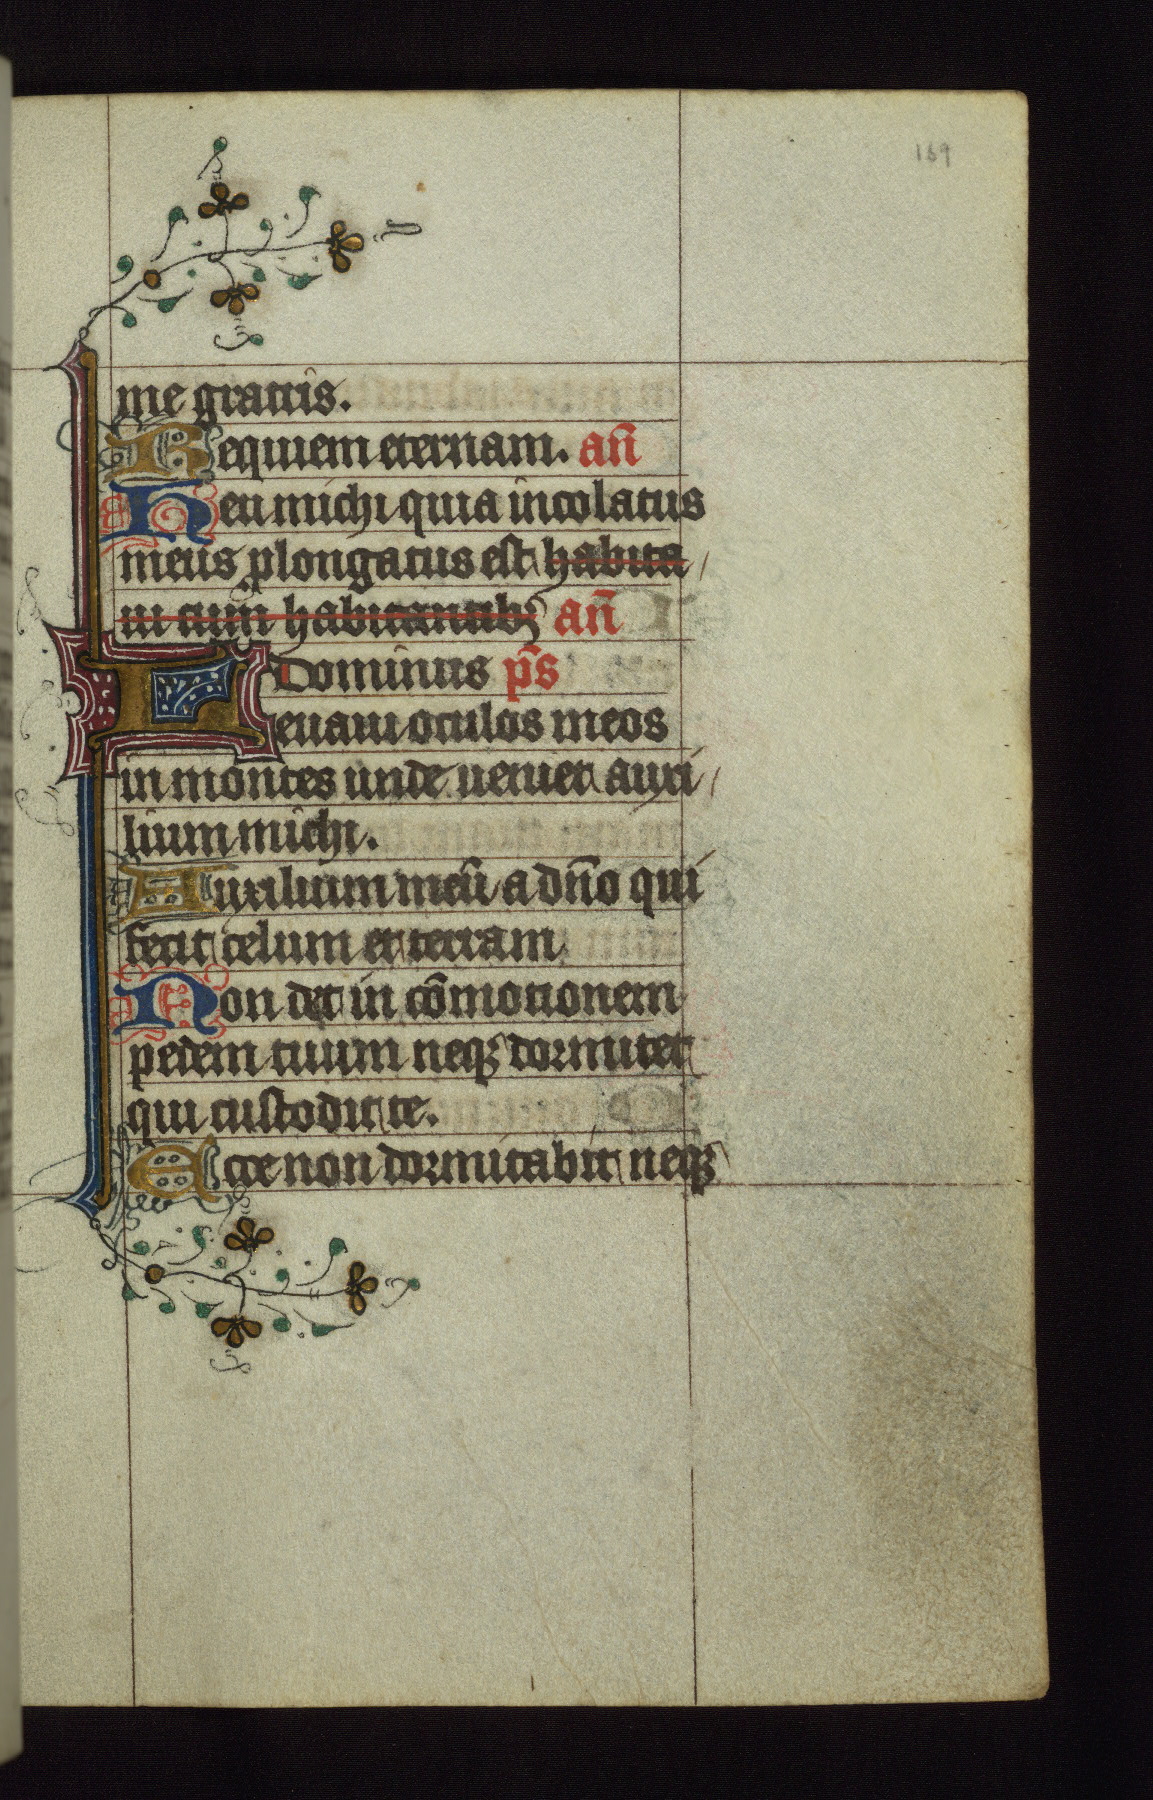 169
me gratis.
Requiem eternam. an̄
Heu michi quia incolatus
meus plongatus est habita
ui cum habitantibꝫ an̄
Dominus p̄s
Leuaui oculos meos
in montes unde ueniet auxi
lium michi.
Auxilium meū a dn̄o qui
fecit celum et terram
Non det in cōmotionem
pedem tuum neqꝫ dormitet
qui custodit te.
Ecce non dormitabit neqꝫ